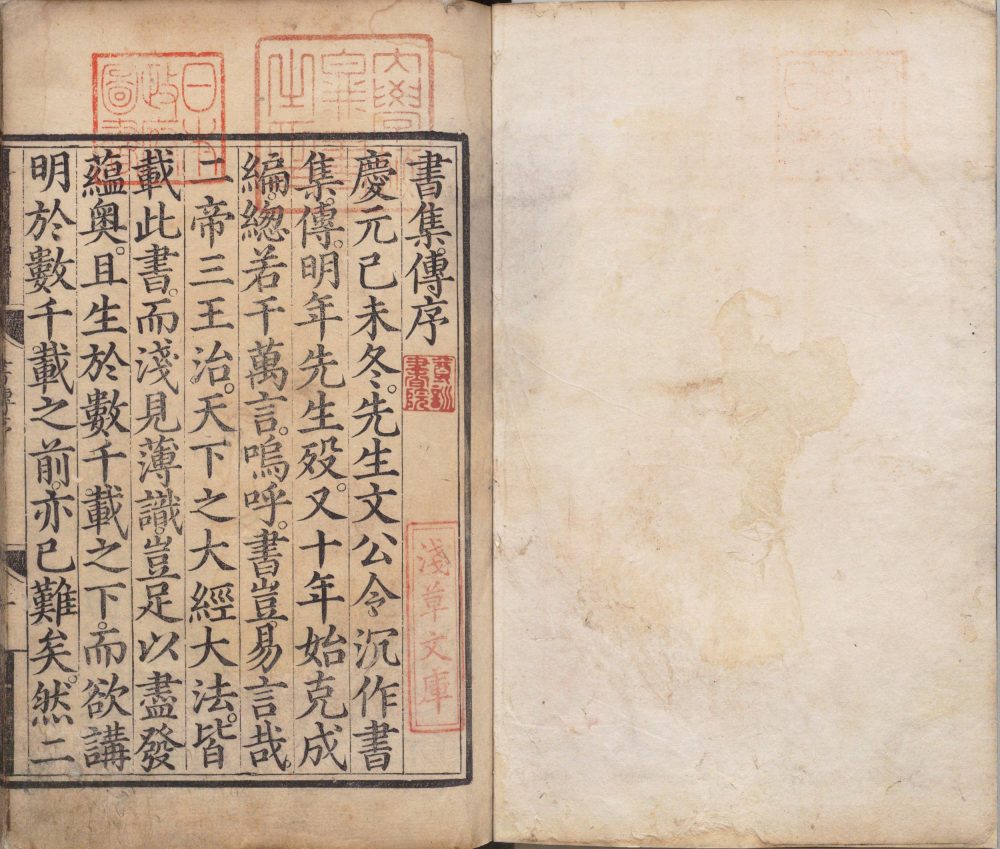 書集傳序
慶元己未冬。先生文公令沉作書
集傳。明年先生歿。又十年始克成
編。緫若干萬言。嗚呼。書豈易言哉。
二帝三王治。天下之大經大法。皆
載此書。而淺見薄識。豈足以盡發
蘊奧。且生於數千載之下。而欲講
明於數千載之前。亦已難矣。然二
淺草文庫